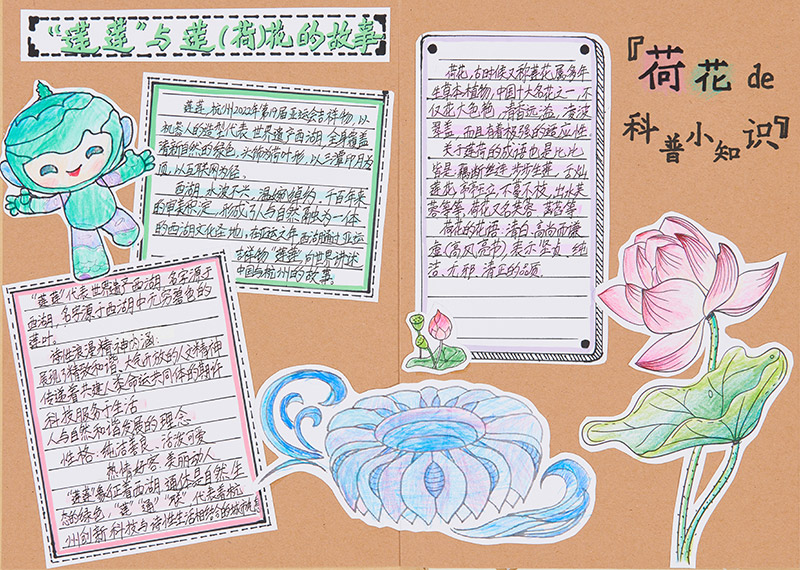 “莲莲”与莲(荷)花的故事
莲莲，杭州2022年第19届亚运会吉祥物，以
机器人的造型代表世界遗产西湖，全身覆盖
清新自然的绿色，头饰为荷叶物，以三潭印月为
顶，以互联网为经。
西湖，水波不兴，温婉
千百年来
形成了人与自然融为一体
的西湖文化圣地，在亚运之年西湖通过亚运
吉祥物“莲莲”向世界讲述
中国与杭州的故事。
“莲莲”代表世界遗产西湖，名字源于
西湖，名字源于西湖中无穷碧色的
莲叶。
诗性浪漫精神内涵：
展现了精致和谐、大气开放的人文精神
传递着共建人类命运共同体的期许
科技服务于生活
人与自然和谐发展的理念
性格：纯洁善良、活泼可爱
热情好客、美丽动人
着西湖，通体是自然、生
态的绿色，“莲”通“联”代表着杭
州创新科技与诗性生活相结合的城市
荷花，古时候又称莲花，属多年
生草本植物，中国十大名花之一，不
仅花大色艳，清香远溢，凌波
翠盖，而且有着极强的适应性。
关于莲荷的成语也是比比
皆是，藕断丝连，步步生莲，舌灿
莲花，不蔓不枝，出水芙
蓉等等，荷花又名芙蓉、菡萏等
荷花的花语：清白、高尚而谦
虚(高风亮节)，表示坚贞、纯
洁、无邪、清正的品质。
『荷花 de
科普小知识』